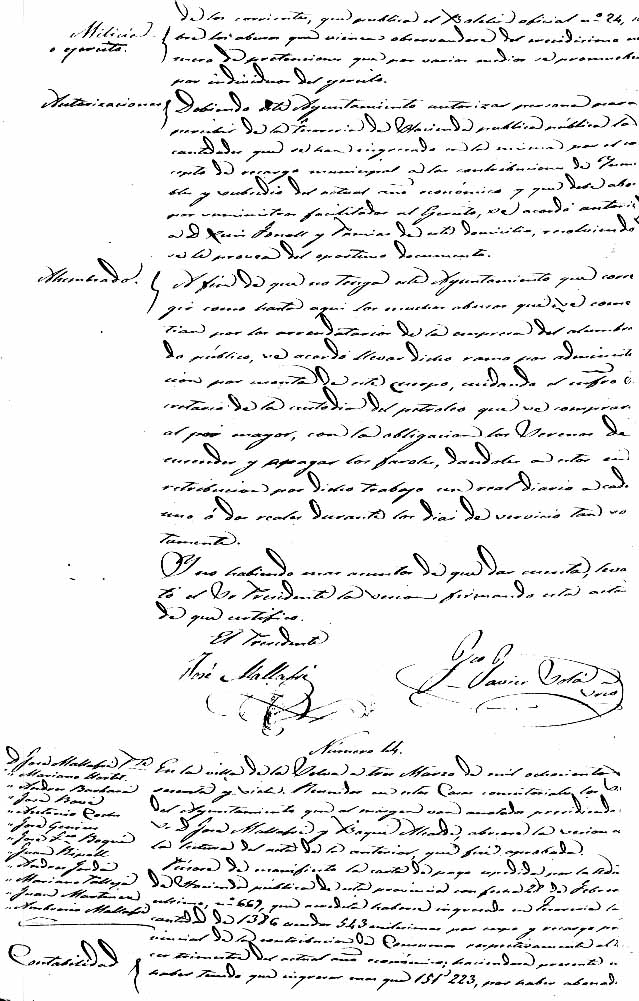 de los corrientes, que publica el Boletin oficial nº 24,
Milicia
o ejercito.
bre los abusos que vienen observandose del crecidisimo nu
mero de pretenciones que por varios medios se promueben
por individuos del ejercito.
Autorizaciones
Debiendo este Ayuntamiento autorizar persona para
percibir de la Tesoreria de Hacienda publica pública la
cantidades que se han ingresado en la misma por el co
cepto de recargo municipal a las contribuciones de Inmue
bles y subsidio del actual año económico y que debe abo
por suministros facilitados al Ejercito, se acordó autori
a D. Luis Bonell y de este domicilio, recibiendo
se le provea del oportuno documento.
Alumbrado.
A fin de que no tenga este Ayuntamiento que corre
gir como hasta aqui los muchos abusos que se come
tian por los arrendatarios de la empresa del alumbra
do público, se acordó llevar dicho ramo por administra
cion por cuenta de este Cuerpo, cuidando el infro S
cretario de la custodia del petroleo que se comprará
al por mayor, con la obligacion los Serenos de
encender y apagar los faroles, dandoles a estos en
retribucion por dicho trabajo un real diario a cada
uno ó dos reales durante los dias de servicio tan so
lamente.
Y no habiendo mas asuntos de que dar cuenta, leva
tó el Sr Presidente la sesion firmando esta acta
de que certifico.
El Presidente
José Mallafré
Fco Javier Solá
Srio
Número 14.
D. José Mallafré Pte
" Mariano
" Andres Barbará
" José
" Antonio
" José
" José Boqué
" Juan Ripoll
" Andres Jordá
" Mariano
" Juan Martinez
" Mallafré
En la villa de la Selva a tres Marzo de mil ochocientos
sesenta y Reunidos en estas Casas consistoriales los S.
del Ayuntamiento que al margen van anotados presididos
D. José Mallafré y Boqué Alcalde, abierta la sesion
la lectura del acta de la anterior, que fué aprobada.
de manifiesto la carta de pago espedida por la
de Hacienda pública de esta provincia con fecha 27 de Febrero
ultimo, nº 669, que acredita haberse ingresado en Tesoreria la
cantidad de 1326 escudos 543 milesimas por cupo y recargo pro
vincial de la contribucion de Consumos respectivamente al
cer trimestre del actual año económico; haciendose presente
haber tenido que ingresar mas que 151'223, por haber abonad
Contabilidad